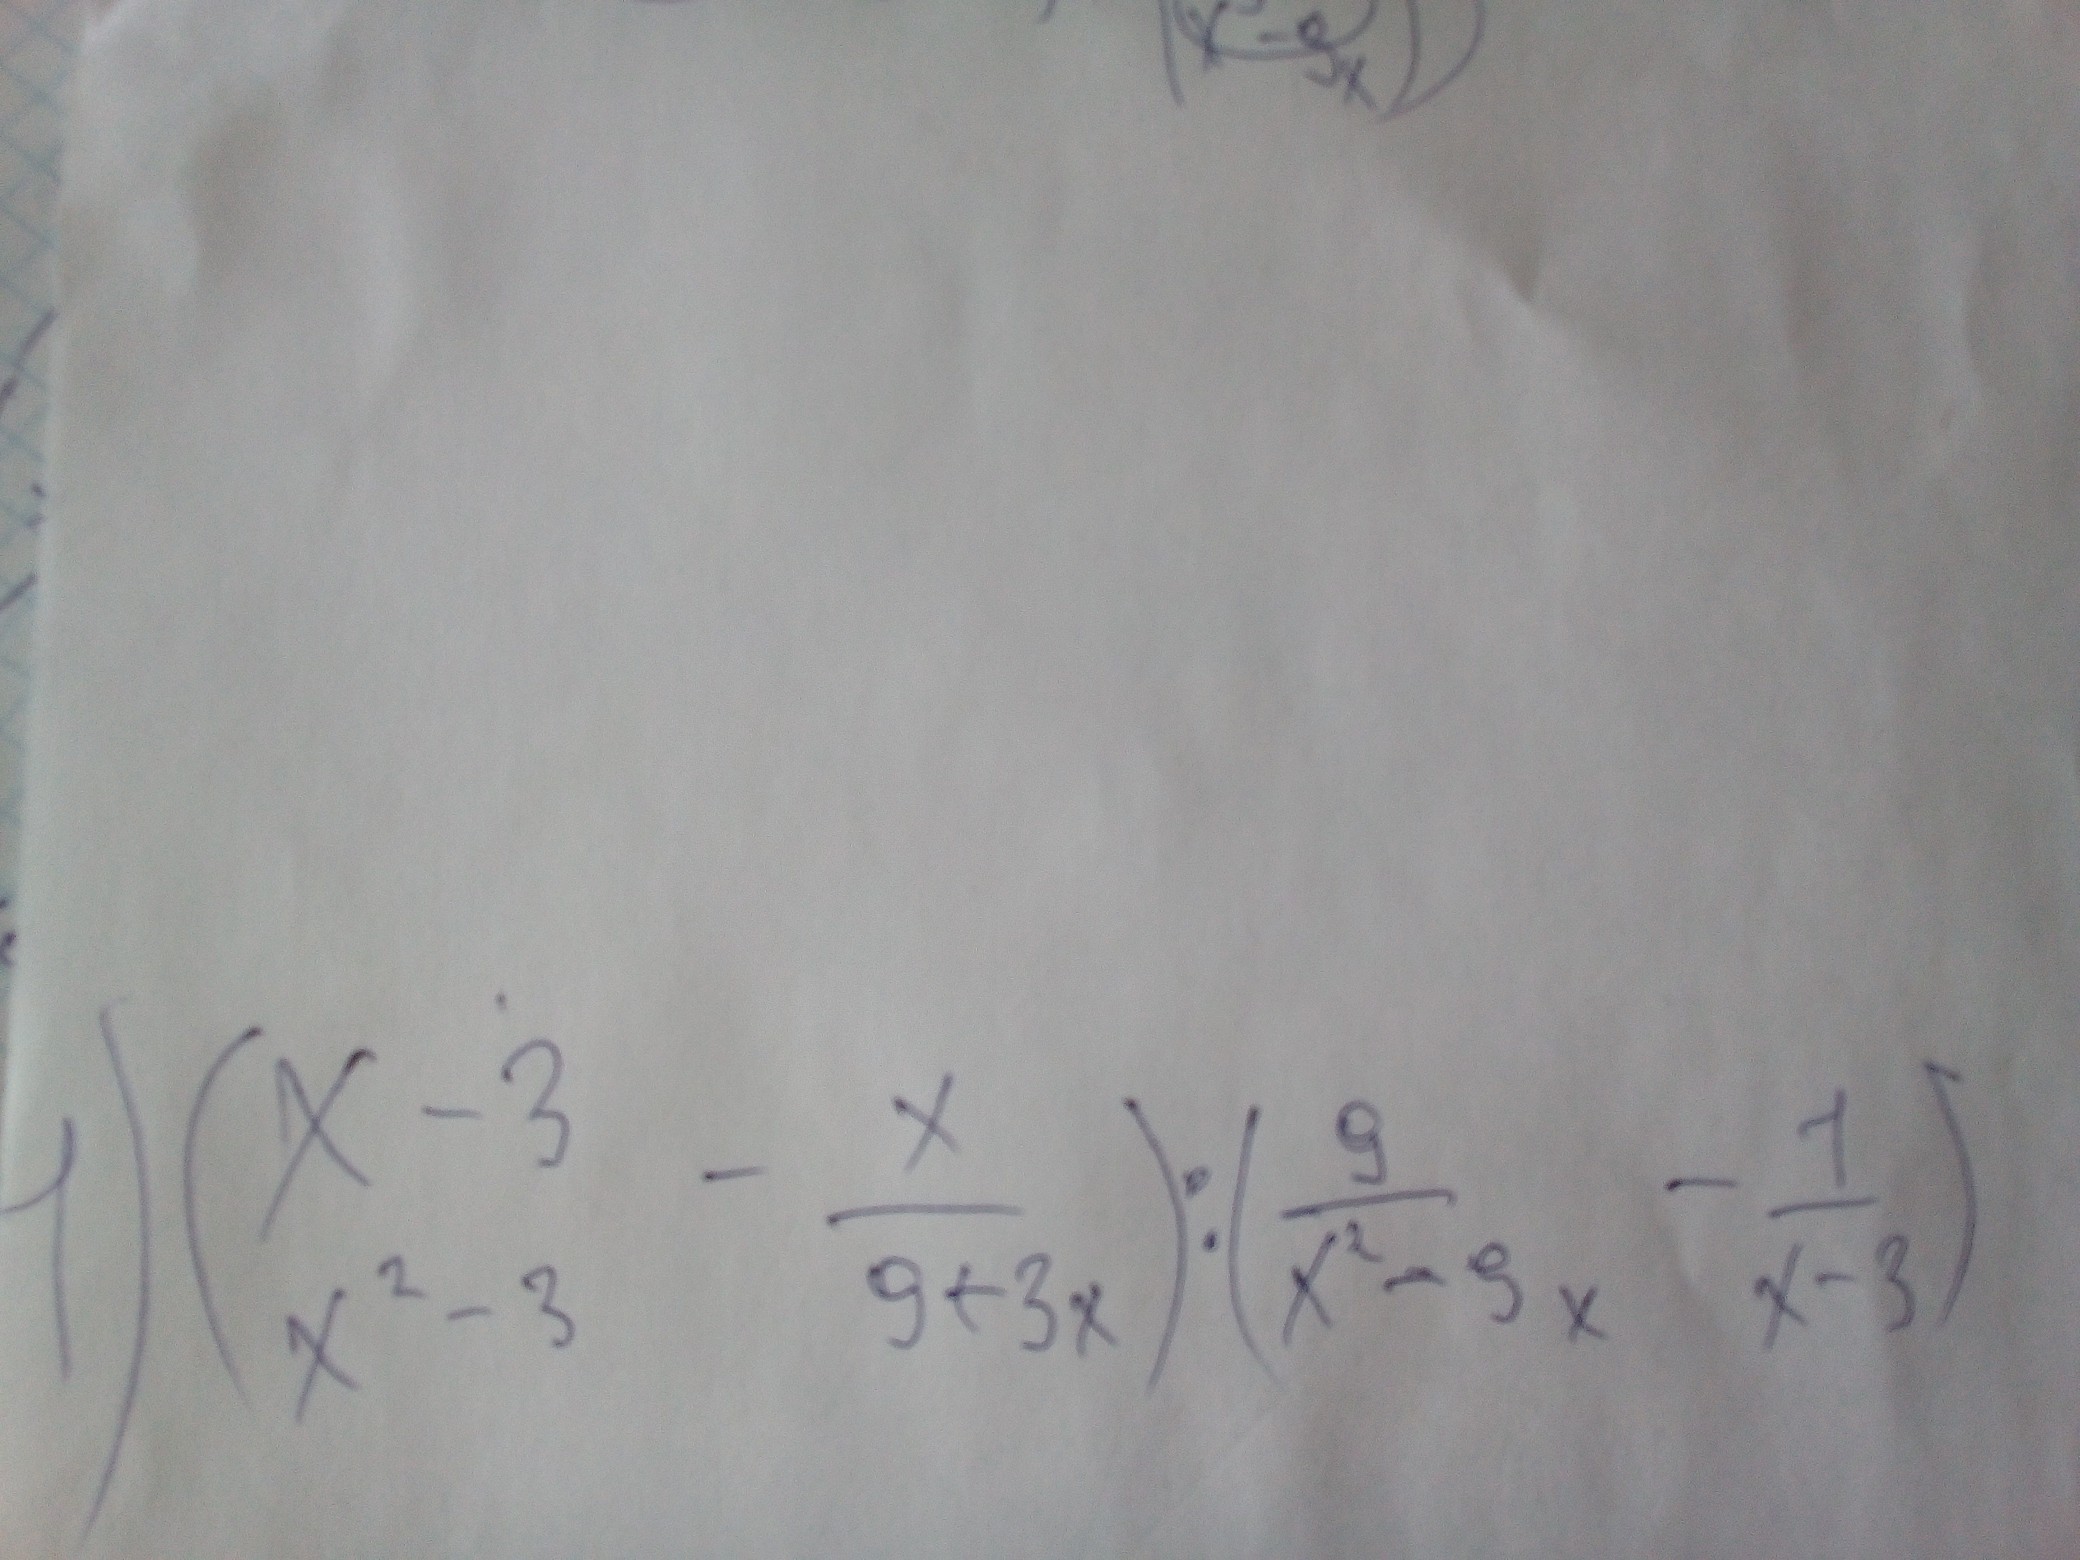 x² - 9x))
1) (x - 3 / x² - 3 - x / (9 + 3x)) : (9 / (x² - 9x) - 1 / (x - 3))